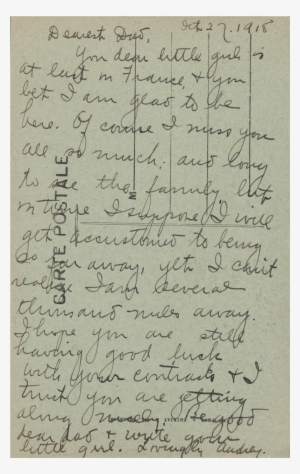 Oct 27. 1918
Dearest Dad,
Your dear little girl is
at last in France, & you
bet I am glad to be
here. Of course I miss you
all so much, and long
to see the family but
in time I suppose I will
get accustomed to being
so far away, yet I can't
realize I am several
thousand miles away.
I hope you are still
having good luck
with your contracts & I
trust you are getting
along nicely, Be good
dear dad & write your
little girl. Lovingly Audrey.
CARTE POSTALE